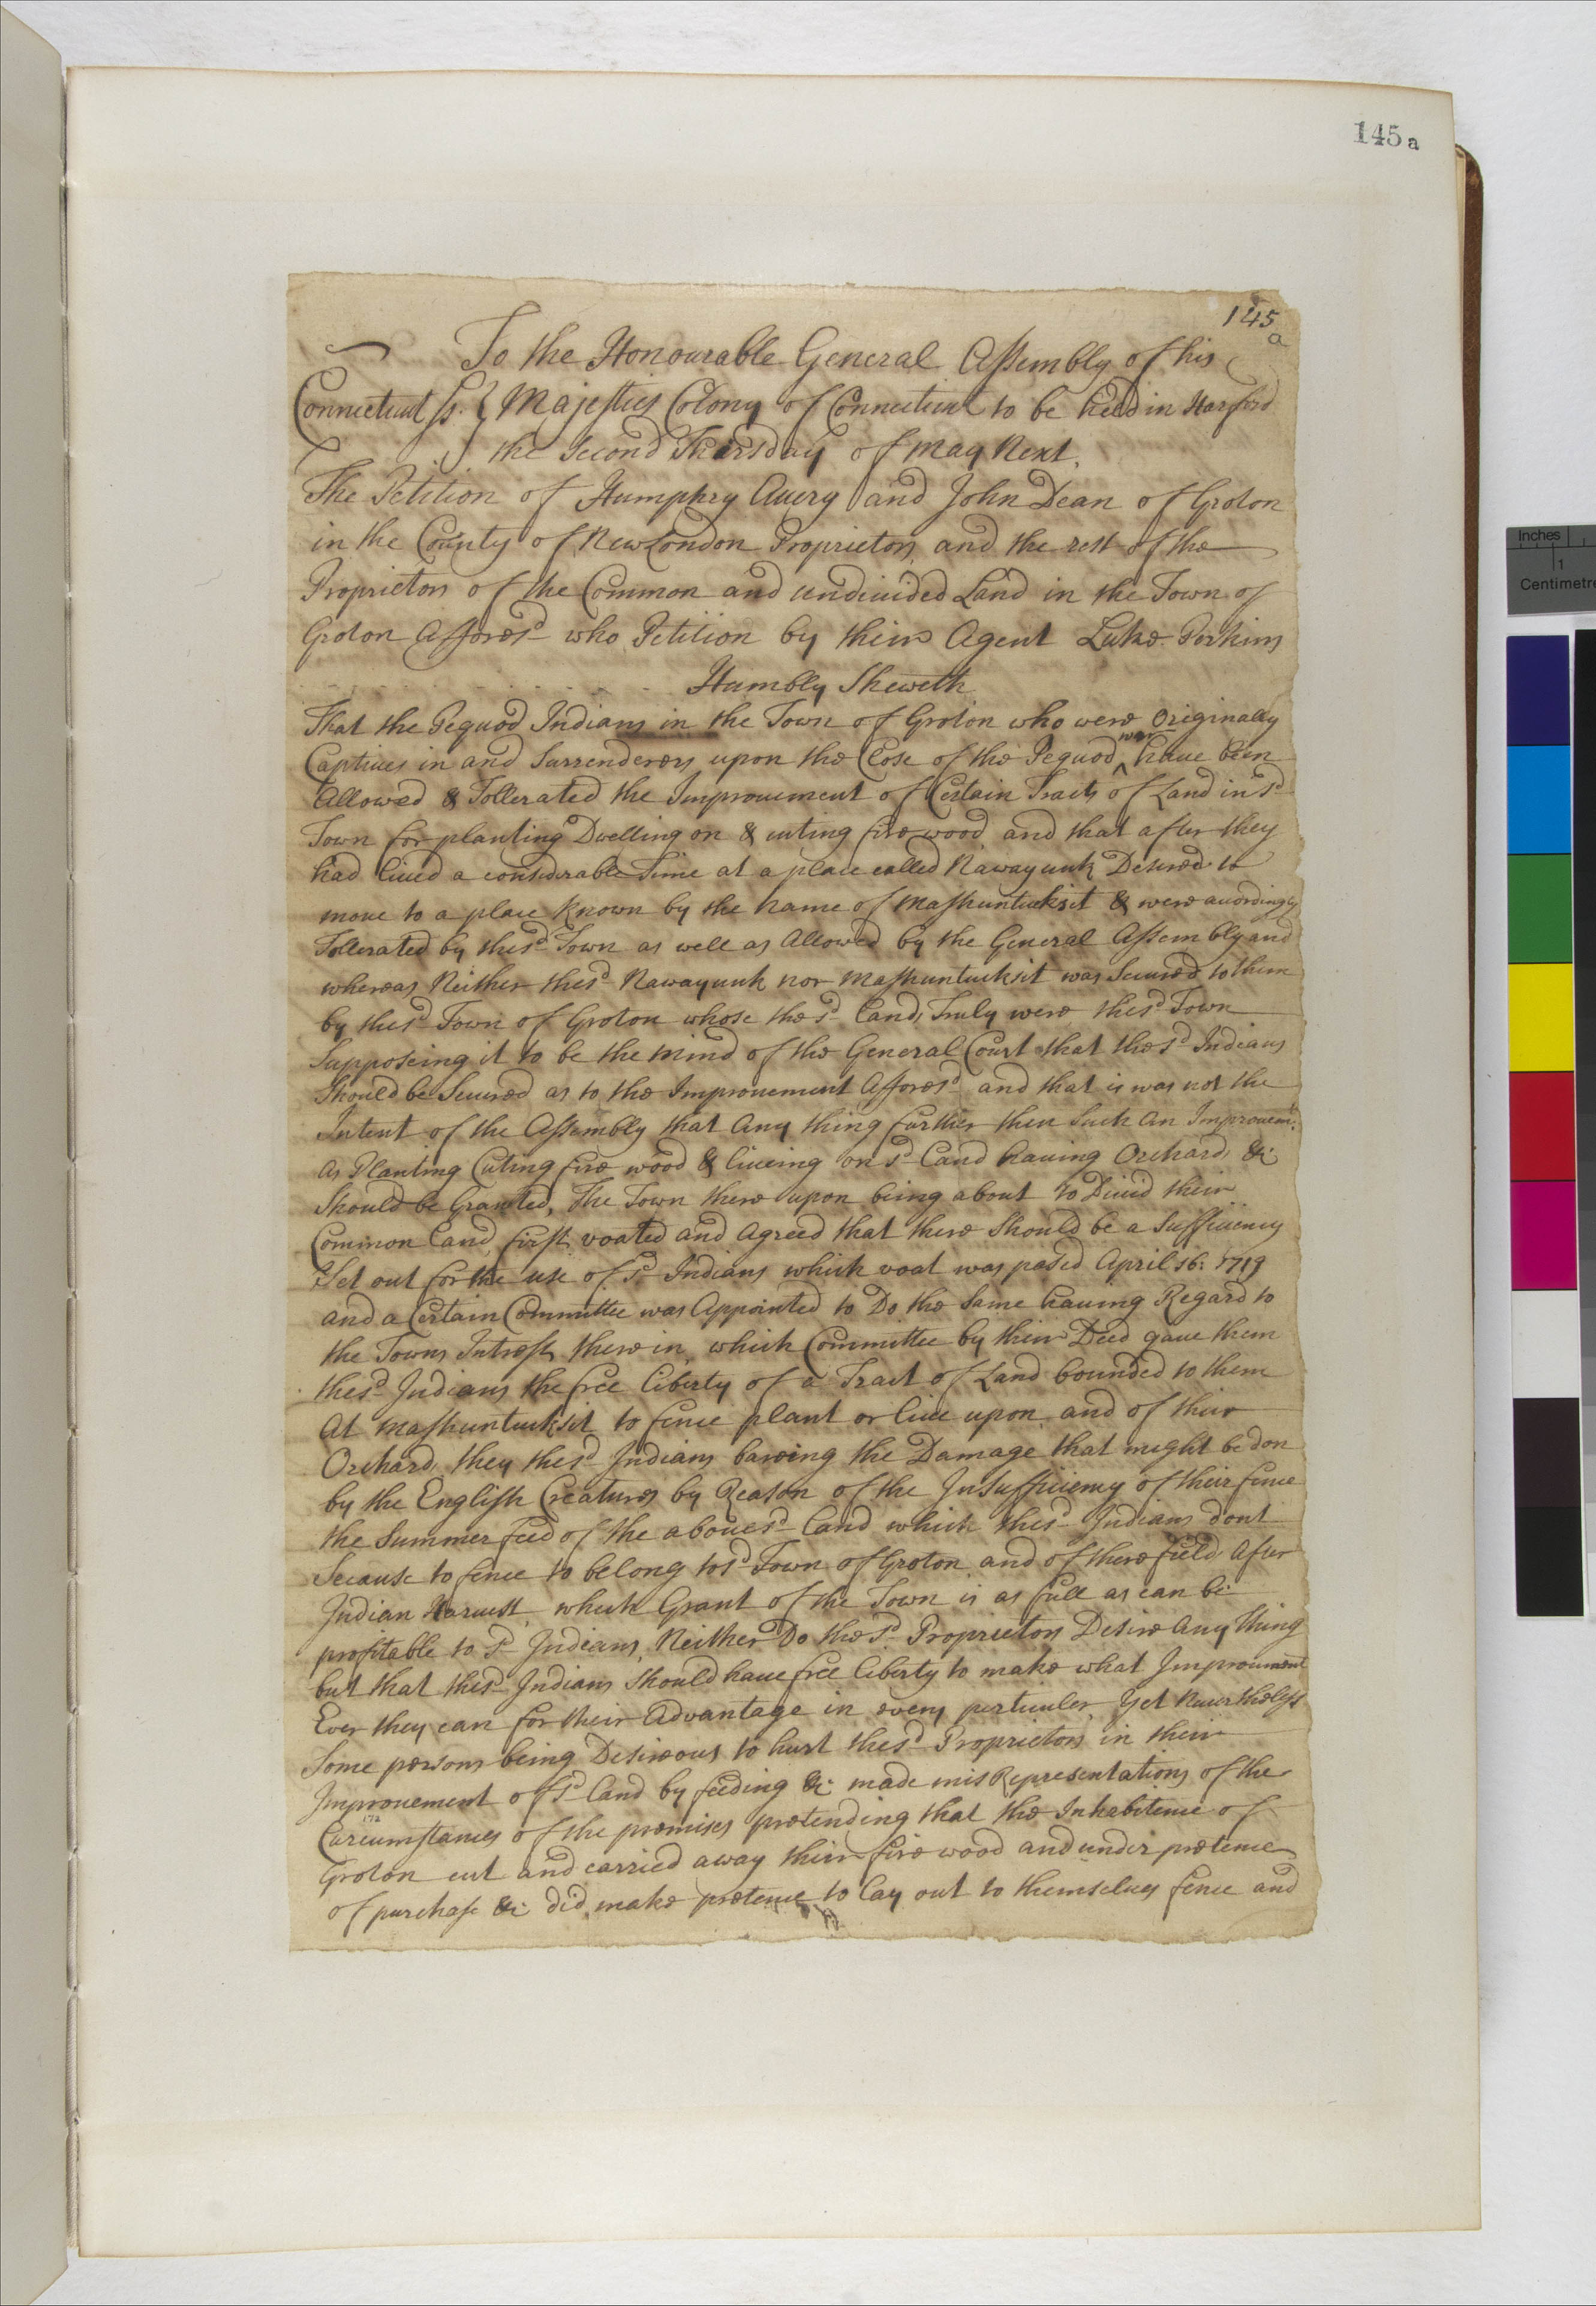 145a
145
a
To the Honourable General Assembly of his
Connecticut ss. { Majesties Colony of Connecticut to be held in Harford
the Second Thursday of May Next.
The Petition of Humphry Avery and John Dean of Groton
in the County of New London Proprietors, and the rest of the
Proprietors of the Common and undivided Land in the Town of
Groton Afforesd who Petition by their Agent Luke Perkins
Humbly Sheweth
That the Pequod Indians in the Town of Groton who were Originally
Captives in and Surrenderers upon the Close of the Pequod ^war have been
Allowed & Tollerated the Improuement of Certain Tracts of Land in sd
Town for planting Dwelling on & cuting fire wood and that after they
had liued a considerable Time at a place called Nawayunk Desired to
moue to a place known by the name of Mashuntucksit & were accordingly
Tollerated by thesd Town as well as Allowed by the General Assembly and
whereas Neither thesd Nawayunk nor Mashuntucksit was Secured to them
by thesd Town of Groton whose the sd Lands Truly were thesd Town
Supposeing it to be the mind of the General Court that the sd Indians
Should be Secured as to the Improuement Afforesd and that is was not the
Intent of the Assembly that Any thing further then Such an Improuemt
as Planting Cuting fire wood & liueing on sd Land hauing Orchards &c
Should be Granted, The Town there upon being about to Diuid their
Common Land, first voated and Agreed that there Should be a Sufficiency
Set out for the use of sd Indians which voat was pased April 16: 1719
and a Certain Committee was Appointed to Do the Same hauing Regard to
the Towns Intrest there in, which Committee by their Deed gaue them
thesd Indians the free liberty of a Tract of Land bounded to them
At Mashuntucksit to fence plant or liue upon and of their
Orchards they thesd Indians bareing the Damage that might be don
by the English Creatures by Reason of the Insufficiency of their fence
the Summer feed of the abouesd Land which thesd Indians dont
Secause to fence to belong to sd Town of Groton and of there fields After
Indian Haruest which Grant of the Town is as full as can be
profitable to sd Indians, Neither Do the sd Proprietors Desire Any Thing
but that thesd Indians Should haue free liberty to make what Improument
Ever they can for their Advantage in every perticuler, Yet Neuertheless
Some persons being Desireous to hurt thesd Proprietors in their
Improuement of sd Land by feeding &c made mis Representations of the
172
Curcumstances of the premises pretending that the Inhabitence of
Groton cut and carried away their fire wood and under pretence
of purchase &c did make pretence to Lay out to themselues fence and
Inches
1
Centimetre